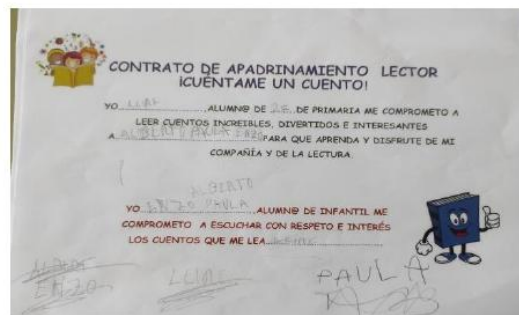 CONTRATO DE APADRINAMIENTO LECTOR
¡CUÉNTAME UN CUENTO!
YO ..............ALUMN@ DE 2º DE PRIMARIA ME COMPROMETO A
LEER CUENTOS INCREIBLES, DIVERTIDOS E INTERESANTES
A ALBERTO PAULA ENZO PARA QUE APRENDA Y DISFRUTE DE MI
COMPAÑÍA Y DE LA LECTURA.
ALBERTO
YO ENZO PAULA ALUMN@ DE INFANTIL ME
COMPROMETO A ESCUCHAR CON RESPETO E INTERÉS
LOS CUENTOS QUE ME LEA
ENZO PAULA